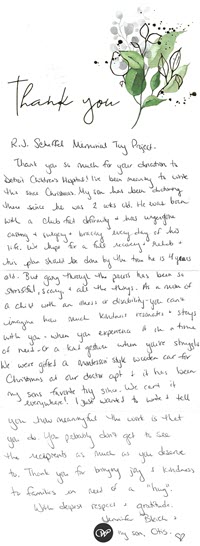 Thank you
R.J. Scheffel Memorial Toy Project.
Thank you so much for your donation to
Detroit Children's Hospital! I've been meaning to write
this since Christmas. My son has been doctoring
there since he was 2 wks old. He was born
with a club foot deformity & has undergone
casting & surgery & bracing every day of his
life. We hope for a full recovery & rehab &
this plan should be done by the time he is 4 years
old. But going through the process has been so
stressful, scary & all the things. As a mom of
a child with an illness or disability - you can't
imagine how much kindness resonates & stays
with you - when you experience it in a time
of need. Or a kind gesture when you're struggling
We were gifted a Montessori style wooden car for
Christmas at our doctor apt & it has been
my sons favorite toy since. We cart it
everywhere! I just wanted to write & tell
you how meaningful the work is that
you do. You probably don't get to see
the recipients as much as you deserve
to. Thank you for bringing joy & kindness
to families in need of a "hug".
With deepest respect & gratitude.
Jennifer &
my son, Otis.